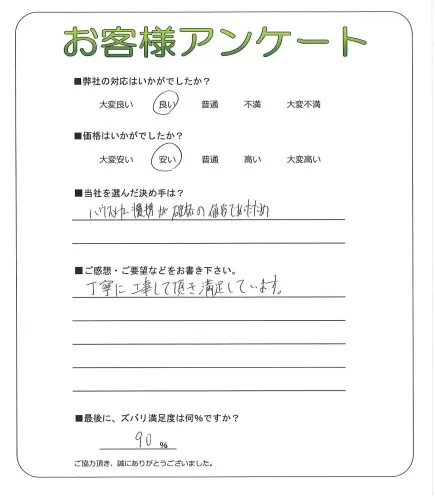 お客様アンケート
■弊社の対応はいかがでしたか？
大変良い 良い 普通 不満 大変不満
■価格はいかがでしたか？
大変安い 安い 普通 高い 大変高い
■当社を選んだ決め手は？
の価格であったため
■ご感想・ご要望などをお書き下さい。
丁寧に工事して頂き満足しています。
■最後に、ズバリ満足度は何%ですか？
90 %
ご協力頂き、誠にありがとうございました。